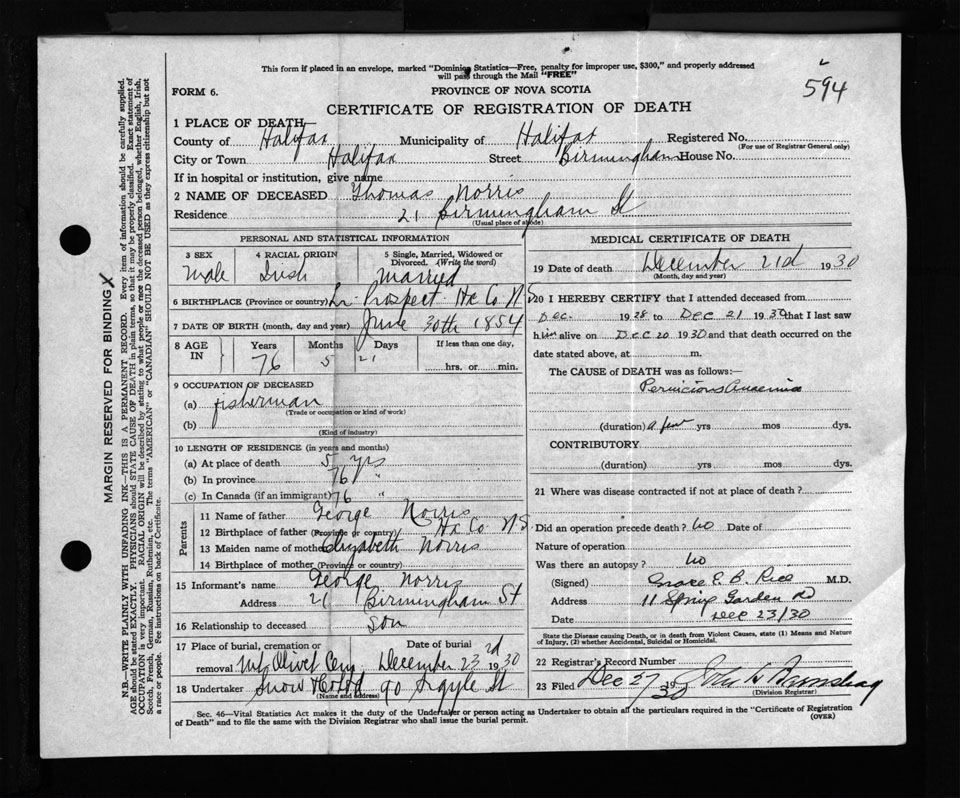 This form if placed in an envelope, marked "Dominion Statistics—Free, penalty for improper use, $300," and properly addressed
will pass through the Mail "FREE"
594
FORM 6.
PROVINCE OF NOVA SCOTIA
CERTIFICATE OF REGISTRATION OF DEATH
1 PLACE OF DEATH
County of Halifax Municipality of Halifax Registered No.
(For use of Registrar General only)
City or Town Halifax Street Birmingham House No.
If in hospital or institution, give name
2 NAME OF DECEASED Thomas Norris
Residence 21 Birmingham St
(Usual place of abode)
PERSONAL AND STATISTICAL INFORMATION
3 SEX Male
4 RACIAL ORIGIN Irish
5 Single, Married, Widowed or Divorced. (Write the word) Married
6 BIRTHPLACE (Province or country) Lr Prospect Hx Co N S
7 DATE OF BIRTH (month, day and year) June 30th 1854
8 AGE IN Years 76 Months 5 Days 21 If less than one day, hrs. or min.
9 OCCUPATION OF DECEASED
(a) fisherman
(Trade or occupation or kind of work)
(b)
(Kind of industry)
10 LENGTH OF RESIDENCE (in years and months)
(a) At place of death 5 yrs
(b) In province 76 "
(c) In Canada (if an immigrant) 76 "
Parents
11 Name of father George Norris
12 Birthplace of father (Province or country) Hx Co N S
13 Maiden name of mother Elizabeth Norris
14 Birthplace of mother (Province or country)
15 Informant's name George Norris
Address 21 Birmingham St
16 Relationship to deceased son
17 Place of burial, cremation or removal Mt Olivet Cem
Date of burial December 23rd 1930
18 Undertaker Snow & Co Ltd 90 Argyle St
(Name and address)
MEDICAL CERTIFICATE OF DEATH
19 Date of death December 21d 1930
(Month, day and year)
20 I HEREBY CERTIFY that I attended deceased from
Dec. 1928 to Dec 21 1930 that I last saw
him alive on Dec 20 1930 and that death occurred on the
date stated above, at m.
The CAUSE of DEATH was as follows:—
Pernicious Anaemia
(duration) a few yrs mos dys.
CONTRIBUTORY
(duration) yrs mos dys.
21 Where was disease contracted if not at place of death?
Did an operation precede death? no Date of
Nature of operation
Was there an autopsy? no
(Signed) Grace E. B. Rice M.D.
Address 11 Spring Garden Rd
Date Dec 23/30
State the Disease causing Death, or in death from Violent Causes, state (1) Means and Nature
of Injury, (2) whether Accidental, Suicidal or Homicidal.
22 Registrar's Record Number
23 Filed Dec 27 1930
(Division Registrar)
Sec. 46—Vital Statistics Act makes it the duty of the Undertaker or person acting as Undertaker to obtain all the particulars required in the "Certificate of Registration
of Death" and to file the same with the Division Registrar who shall issue the burial permit.
(OVER)
MARGIN RESERVED FOR BINDING
N.B.—WRITE PLAINLY WITH UNFADING INK—THIS IS A PERMANENT RECORD. Every item of information should be carefully supplied.
AGE should be stated EXACTLY. PHYSICIANS should STATE CAUSE OF DEATH in plain terms, so that it may be properly classified. Exact statement of
OCCUPATION is very important. RACIAL ORIGIN will be described by stating to what people or race the deceased person belonged, whether English, Irish,
Scotch, French, German, Russian, Ruthenian, etc. The terms "AMERICAN" or "CANADIAN" SHOULD NOT BE USED as they express citizenship but not
a race or people. See instructions on back of Certificate.